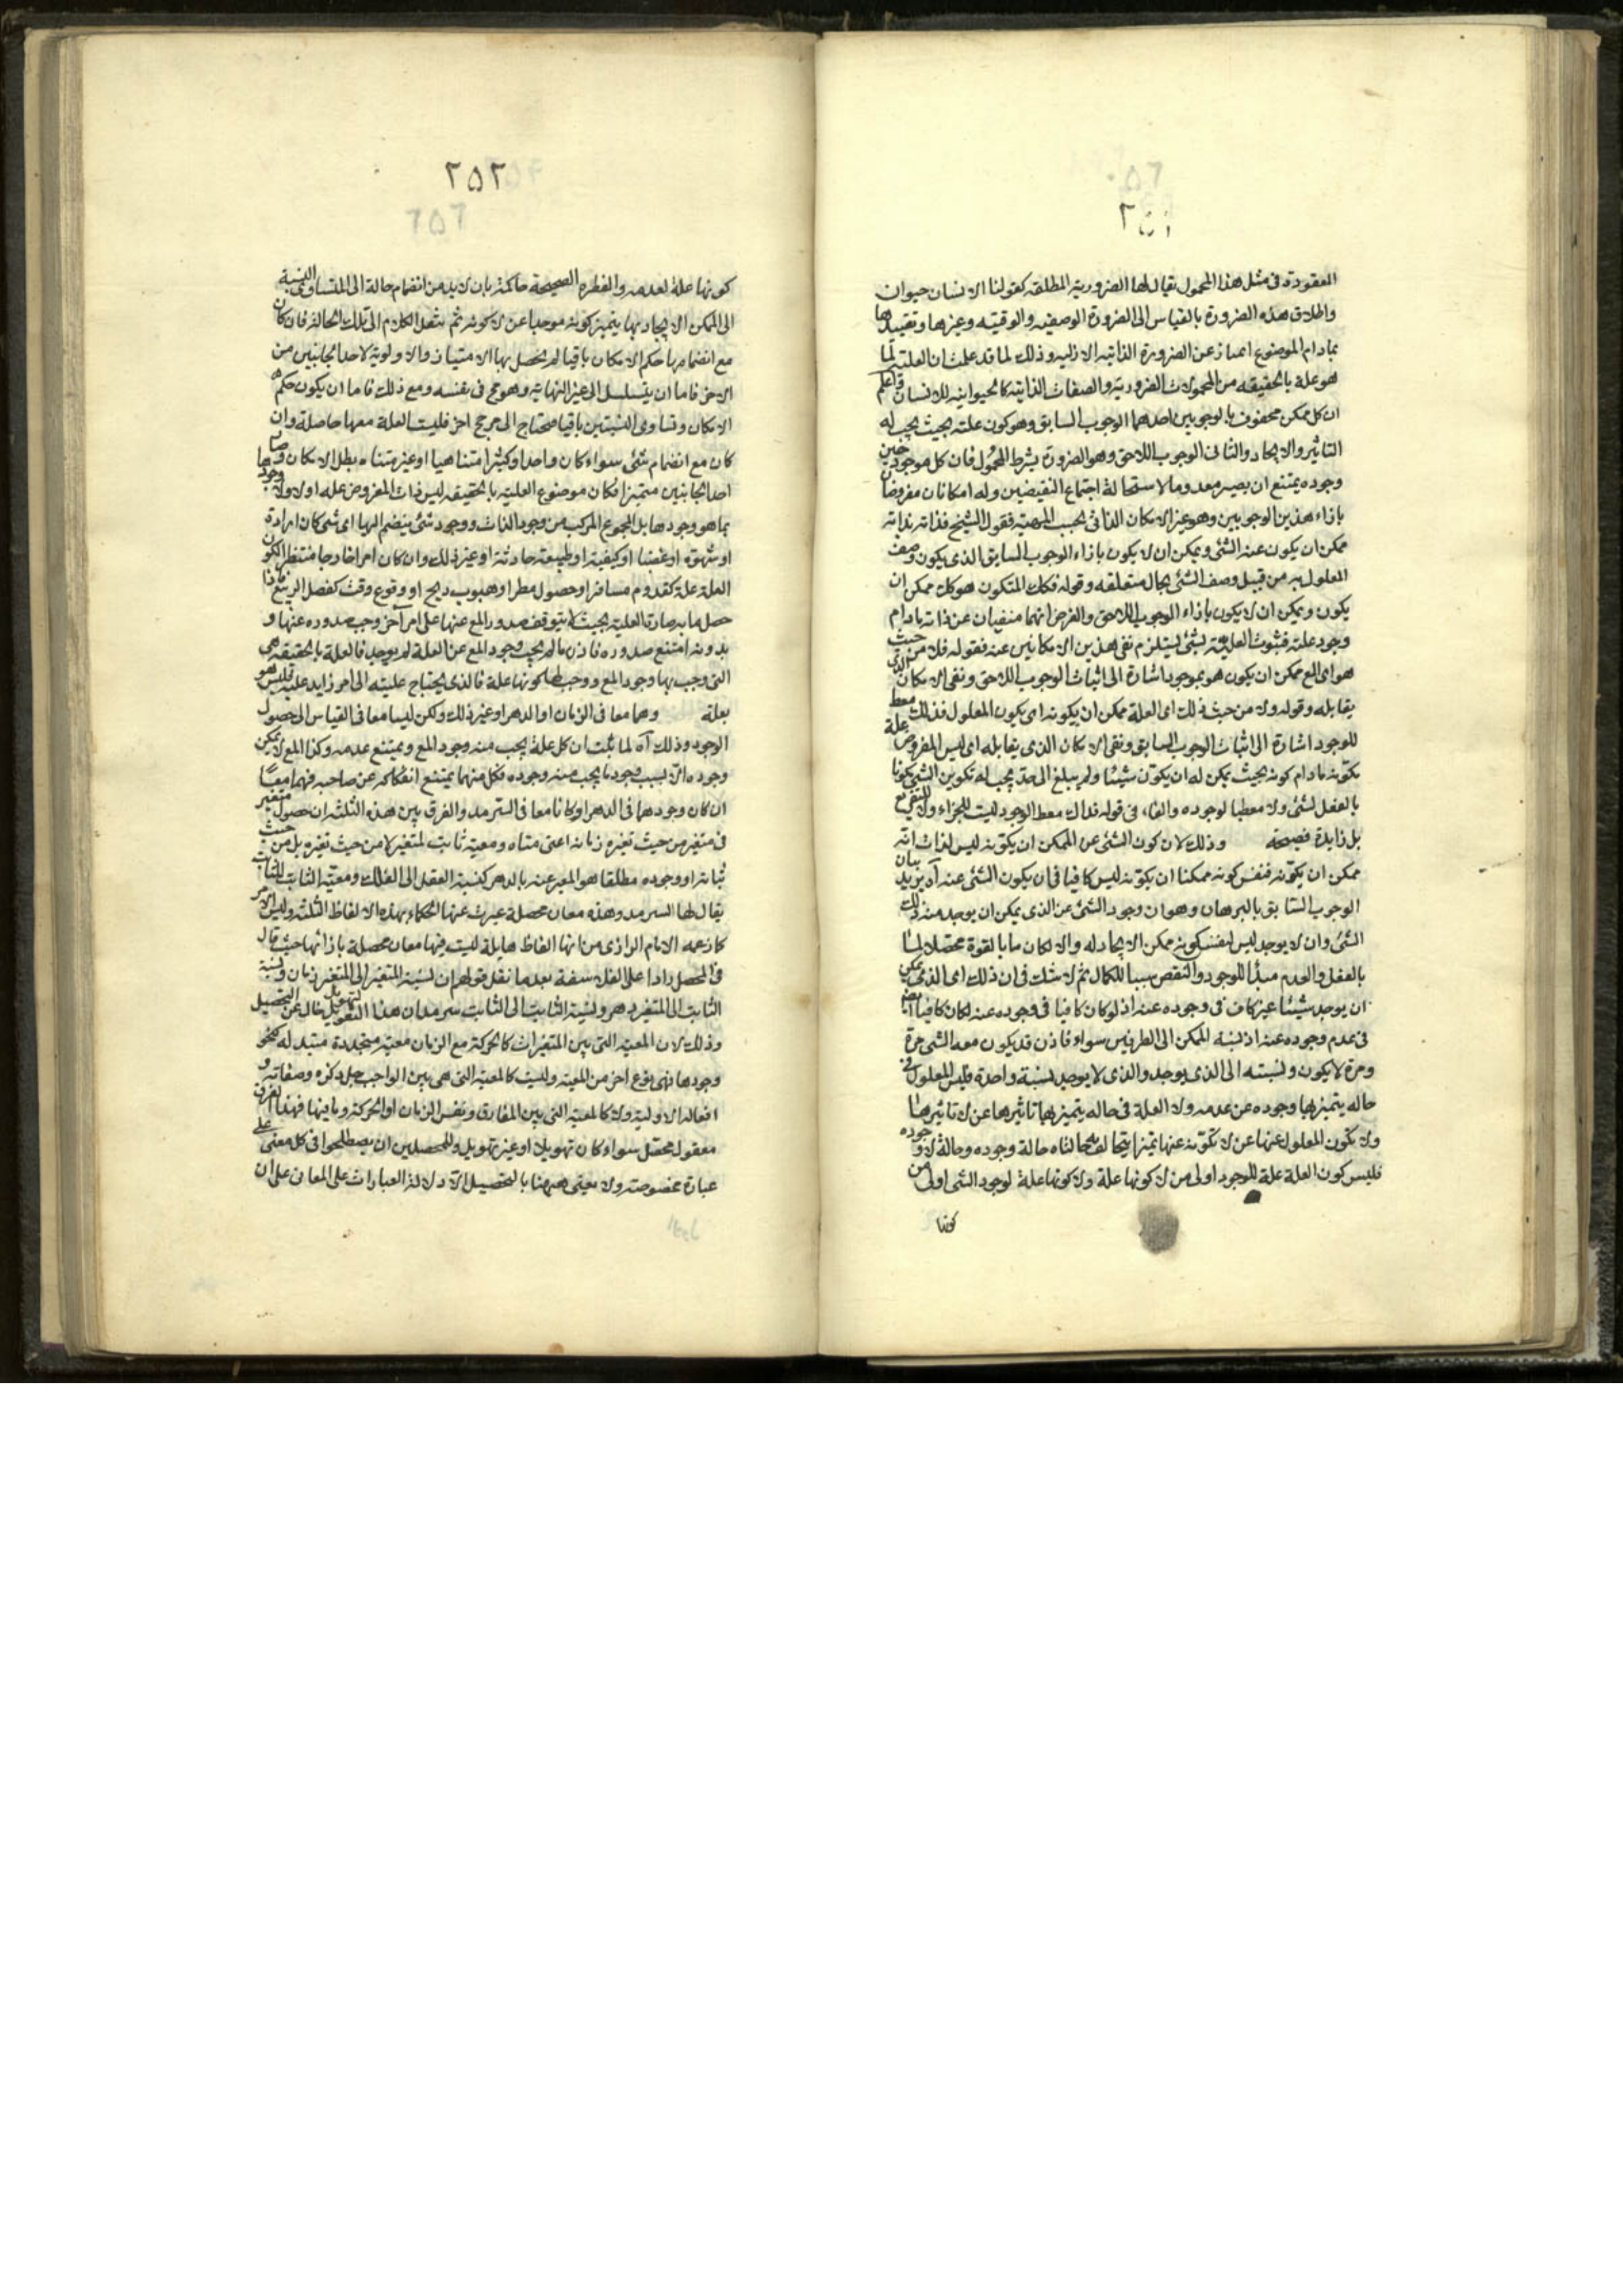 ٢٥١
المعقودة فى مثل هذا المحمول يقال لها الضرورية المطلقة كقولنا الانسان حيوان
واطلاق هذه الضرورة بالقياس الى الضرورة الوصفيه والوقتيه وغيرها وتقييدها
بمادام الموضوع امتياز عن الضرورة الذاتيه الازليه وذلك لما قد علمت ان العلتية لما
هو علة بالحقيقه من المحمولات الضرورية والصفات الذاتية كالحيوانيه للانسان واعلم
ان كل ممكن محفوف بالوجوبين احدهما الوجوب السابق وهو كون علته بحيث يجب له
التاثير والايجاد والثانى الوجوب اللاحق وهو الضرورة بشرط المحمول فان كل موجود حين
وجوده يمتنع ان يصير معدوما لاستحالة اجتماع النقيضين وله امكانان مفروضان
بازاء هذين الوجوبين وهو غير الامكان الذاتى بحسب المهية فقول الشيخ فذاته بذاته
ممكن ان يكون عنه الشئ ويمكن ان لا يكون بازاء الوجوب السابق الذى يكون وصف
المعلول به من قبيل وصف الشئ بحال متعلقه وقوله فكك المتكون هو كك ممكن ان
يكون ويمكن ان لا يكون بازاء الوجوب اللاحق والغرض انهما منفيان عن ذاته مادام
وجود علته فثبوت العلية لشئ يستلزم نفى هذين الامكانين عنه فقوله فلا من حيث
هو اى المع ممكن ان يكون هو بموجود اشارة الى اثبات الوجوب اللاحق ونفى الامكان الذى
يقابله وقوله ولا من حيث ذلك اى العلة ممكن ان يكونه اى يكون المعلول فذلك معط
للوجود اشارة الى اثبات الوجوب السابق ونفى الامكان الذى يقابله اى ليس المفروض علة
بكونه مادام كونه بحيث يمكن له ان يكون شيئا ولم يبلغ الى حد يجب له تكوين الشئ مكونا
بالفعل لشئ ولا معطيا لوجوده والفاء فى قوله فذاك معط الوجود ليست للجزاء ولا للتفريع
بل زايدة فصيحة وذلك لان كون الشئ عن الممكن ان يكونه ليس لذات انه
ممكن ان يكونه فنفس كونه ممكنا ان يكونه ليس كافيا فى ان يكون الشئ عنه آه يريد بيان
الوجوب السابق بالبرهان وهو ان وجود الشئ عن الذى يمكن ان يوجد منه ذلك
الشئ وان لا يوجد ليس لنفس كونه ممكن الايجاد له والا لكان ما بالقوة محصلا لما
بالفعل والعدم مبدأ للوجود والنقص سببا للكمال ثم لا شك فى ان ذلك اى الذى يمكن
ان يوجد شيئا غير كاف فى وجوده عنه اذ لو كان كافيا فى وجوده عنه لكان كافيا ايضا
فى عدم وجوده عنه اذ نسبة الممكن الى الطرفين سواء فاذن قد يكون معه الشئ مرة
ومرة لا يكون ونسبته الى الذى يوجد والذى لا يوجد نسبة واحدة فليس للمعلول فى
حاله يتميز بها وجوده عن عدمه ولا العلة فى حاله يتميز بها تاثيرها عن لا تاثيرها
ولا تكون المعلول عنها عن لا تكونه عنها تميزا يتخالف بحالتاه حالة وجوده وحالة لا وجوده
فليس كون العلة علة للوجود اولى من لا كونها علة ولا كونها علة لوجود الشئ اولى من
كونها
٢٥٢
كونها علة لعدمه والفطره الصحيحة حاكمة بان لا بد من انضمام حالة الى المتساوى النسبة
الى الممكن الايجاد بها يتميز كونه موجدا عن لا كونه ثم ننقل الكلام الى تلك الحالة فان كان
مع انضمامها حكم الامكان باقيا لم يحصل بها الامتياز والاولوية لاحد الجانبين من
الاخر فاما ان يتسلسل الى غير النهاية وهو مح فى نفسه ومع ذلك فاما ان يكون حكم
الامكان وتساوى النسبتين باقيا فتحتاج الى مرجح اخر فليست العلة معها حاصلة وان
كان مع انضمام شئ سواء كان واحدا وكثيرا متناهيا او غير متناه بطل الامكان وصار
احد الجانبين متميزا فكان موضوع العلية بالحقيقه ليس ذات المفروض علة اولا ولا وجودها
بما هو وجودها بل المجموع المركب من وجود الذات ووجود شئ ينضم اليها اى شئ كان ارادة
او شهوة او غضبا او كيفية او طبيعة حادثة او غير ذلك وان كان امرا خارجا منتظر الكون
العلة علة كقدوم مسافر او حصول مطر او هبوب ريح او وقوع وقت كفصل الربيع فاذا
حصل ما به صارت العلية بحيث لا يتوقف صدور المع عنها على امر آخر وجب صدوره عنها و
بدونه امتنع صدوره فاذن ما لم يجب وجود المع عن العلة لم يوجد فالعلة بالحقيقه هى
التى وجب بها وجود المع ووجب لها كونها علة فالذى يحتاج عليته الى امر زايد عليه فليس هو
بعلة وهما معا فى الزمان او الدهر او غير ذلك ولكن ليسا معا فى القياس الى حصول
الوجود وذلك آه لما ثبت ان كل علة يجب منه وجود المع ويمتنع عدمه وكذا المع لا يمكن
وجوده الا بسبب وجود ما يجب منه وجوده فكل منهما يمتنع انفكاكه عن صاحبه فهما معا
ان كان وجودهما فى الدهر او كانا معا فى السرمد والفرق بين هذه الثلثة ان حصول متغير
فى متغير من حيث تغيره زمانه اعنى متاه ومعية ثابت لمتغير لا من حيث تغيره بل من حيث
ثباته او وجوده مطلقا هو المعبر عنه بالدهر كنسبة العقل الى الفلك ومعية الثابت للثابت
يقال لها السرمد وهذه معان محصلة عبرت عنها الحكماء بهذه الالفاظ الثلثة وليس الامر
كما زعمه الامام الرازى من انها الفاظ هايلة ليست فيها معان محصلة بازائها حيث قال
فى المحصل رادا على الفلاسفة بعد ما نقل قولهم ان نسبة المتغير الى المتغير زمان ونسبة
الثابت الى المتغير دهر ونسبة الثابت الى الثابت سرمد ان هذا التهويل خال عن التحصيل
وذلك لان المعية التى بين المتغيرات كالحركة مع الزمان معية متجددة متبدلة نحو
وجودها فهى نوع اخر من المعية وليست كالمعية التى هى بين الواجب جل ذكره وصفاته و
افعاله الاولية ولا كالمعية التى بين المفارق ونفس الزمان او الحركة وما فيها فهذا الفرق
معقول محصل سواء كان تهويلا او غير تهويل وللمحصلين ان يصطلحوا فى كل معنى على
عبارة مخصوصة ولا معنى ههنا بالتحصيل الا دلالة العبارات على المعانى على ان